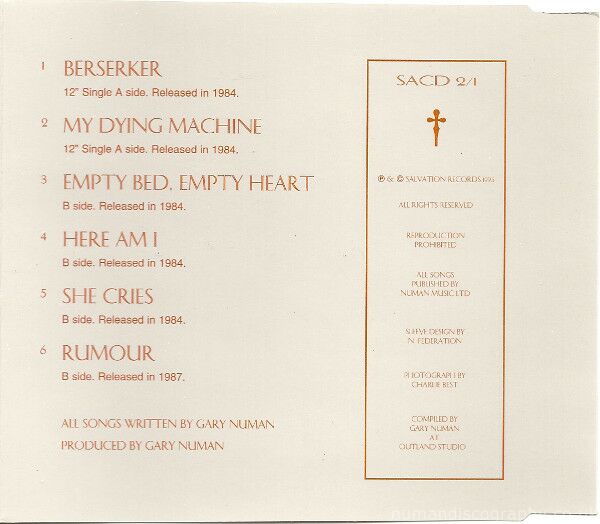 1 BERSERKER
12" Single A side. Released in 1984.
2 MY DYING MACHINE
12" Single A side. Released in 1984.
3 EMPTY BED, EMPTY HEART
B side. Released in 1984.
4 HERE AM I
B side. Released in 1984.
5 SHE CRIES
B side. Released in 1984.
6 RUMOUR
B side. Released in 1987.
ALL SONGS WRITTEN BY GARY NUMAN
PRODUCED BY GARY NUMAN
SACD 2/1
℗ & © SALVATION RECORDS 1995
ALL RIGHTS RESERVED
REPRODUCTION
PROHIBITED
ALL SONGS
PUBLISHED BY
NUMAN MUSIC LTD
SLEEVE DESIGN BY
N FEDERATION
PHOTOGRAPH BY
CHARLIE BEST
COMPILED BY
GARY NUMAN
AT
OUTLAND STUDIO